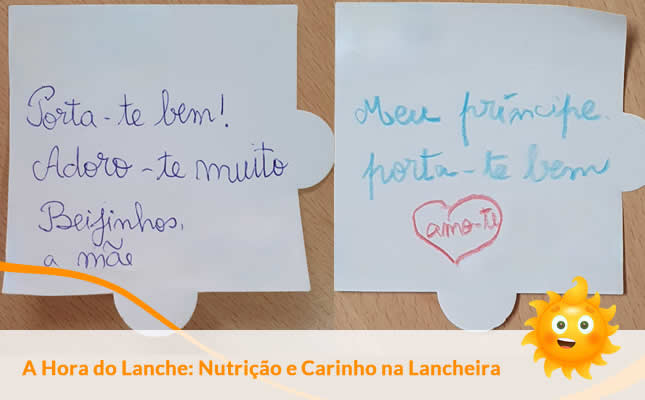 Porta-te bem!
Adoro-te muito
Beijinhos,
a mãe
Meu príncipe.
porta-te bem
amo-te
A Hora do Lanche: Nutrição e Carinho na Lancheira